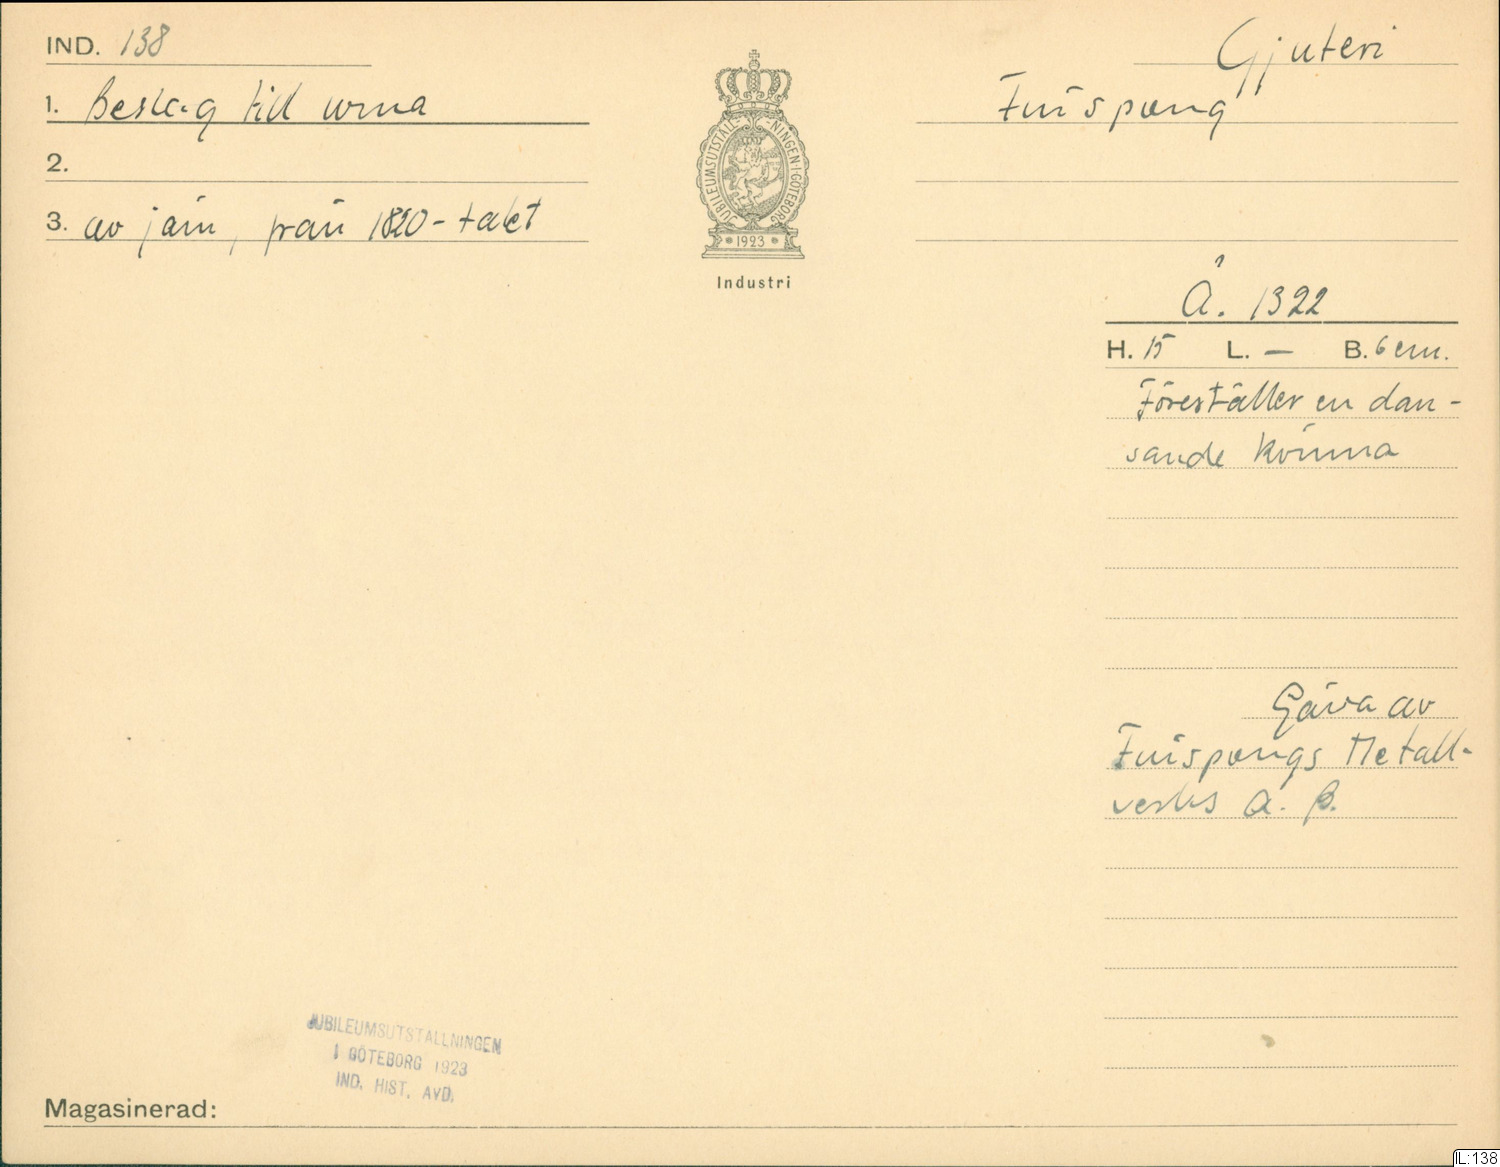 IND. 138
Gjuteri
1. Beslag till urna
Finspong
2.
3. av järn, från 1820-talet
JUBILEUMSUTSTÄLLNINGEN·I·GÖTEBORG
1923
Industri
Å. 1322
H. 15 L. — B. 6 cm.
Föreställer en dan-
sande kvinna
Gåva av
Finspongs Metall-
verks A. B.
JUBILEUMSUTSTÄLLNINGEN
I GÖTEBORG 1923
IND. HIST. AVD.
Magasinerad:
IL:138